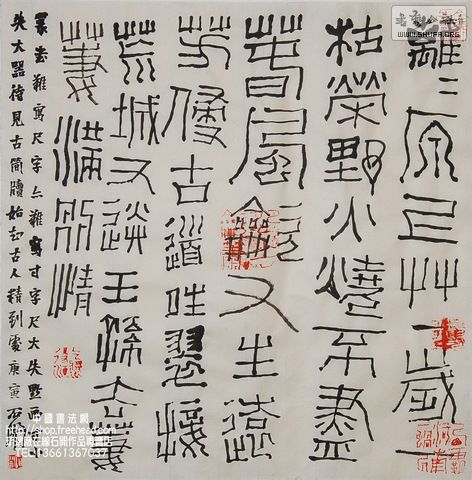 離=原上艸一歲一
枯榮野火燒不盡
春風吹又生遠
芳侵古道晴翠接
荒城又送王孫去萋
萋滿別情
篆書難寫尺字亦難寫寸字尺大失
失大器待見古簡牘始知古人精到處庚寅
WWW.SHUFA.ORG
中國書法網
http://shop.freehead.com
在線石開作品專賣店
TEL:13661367037